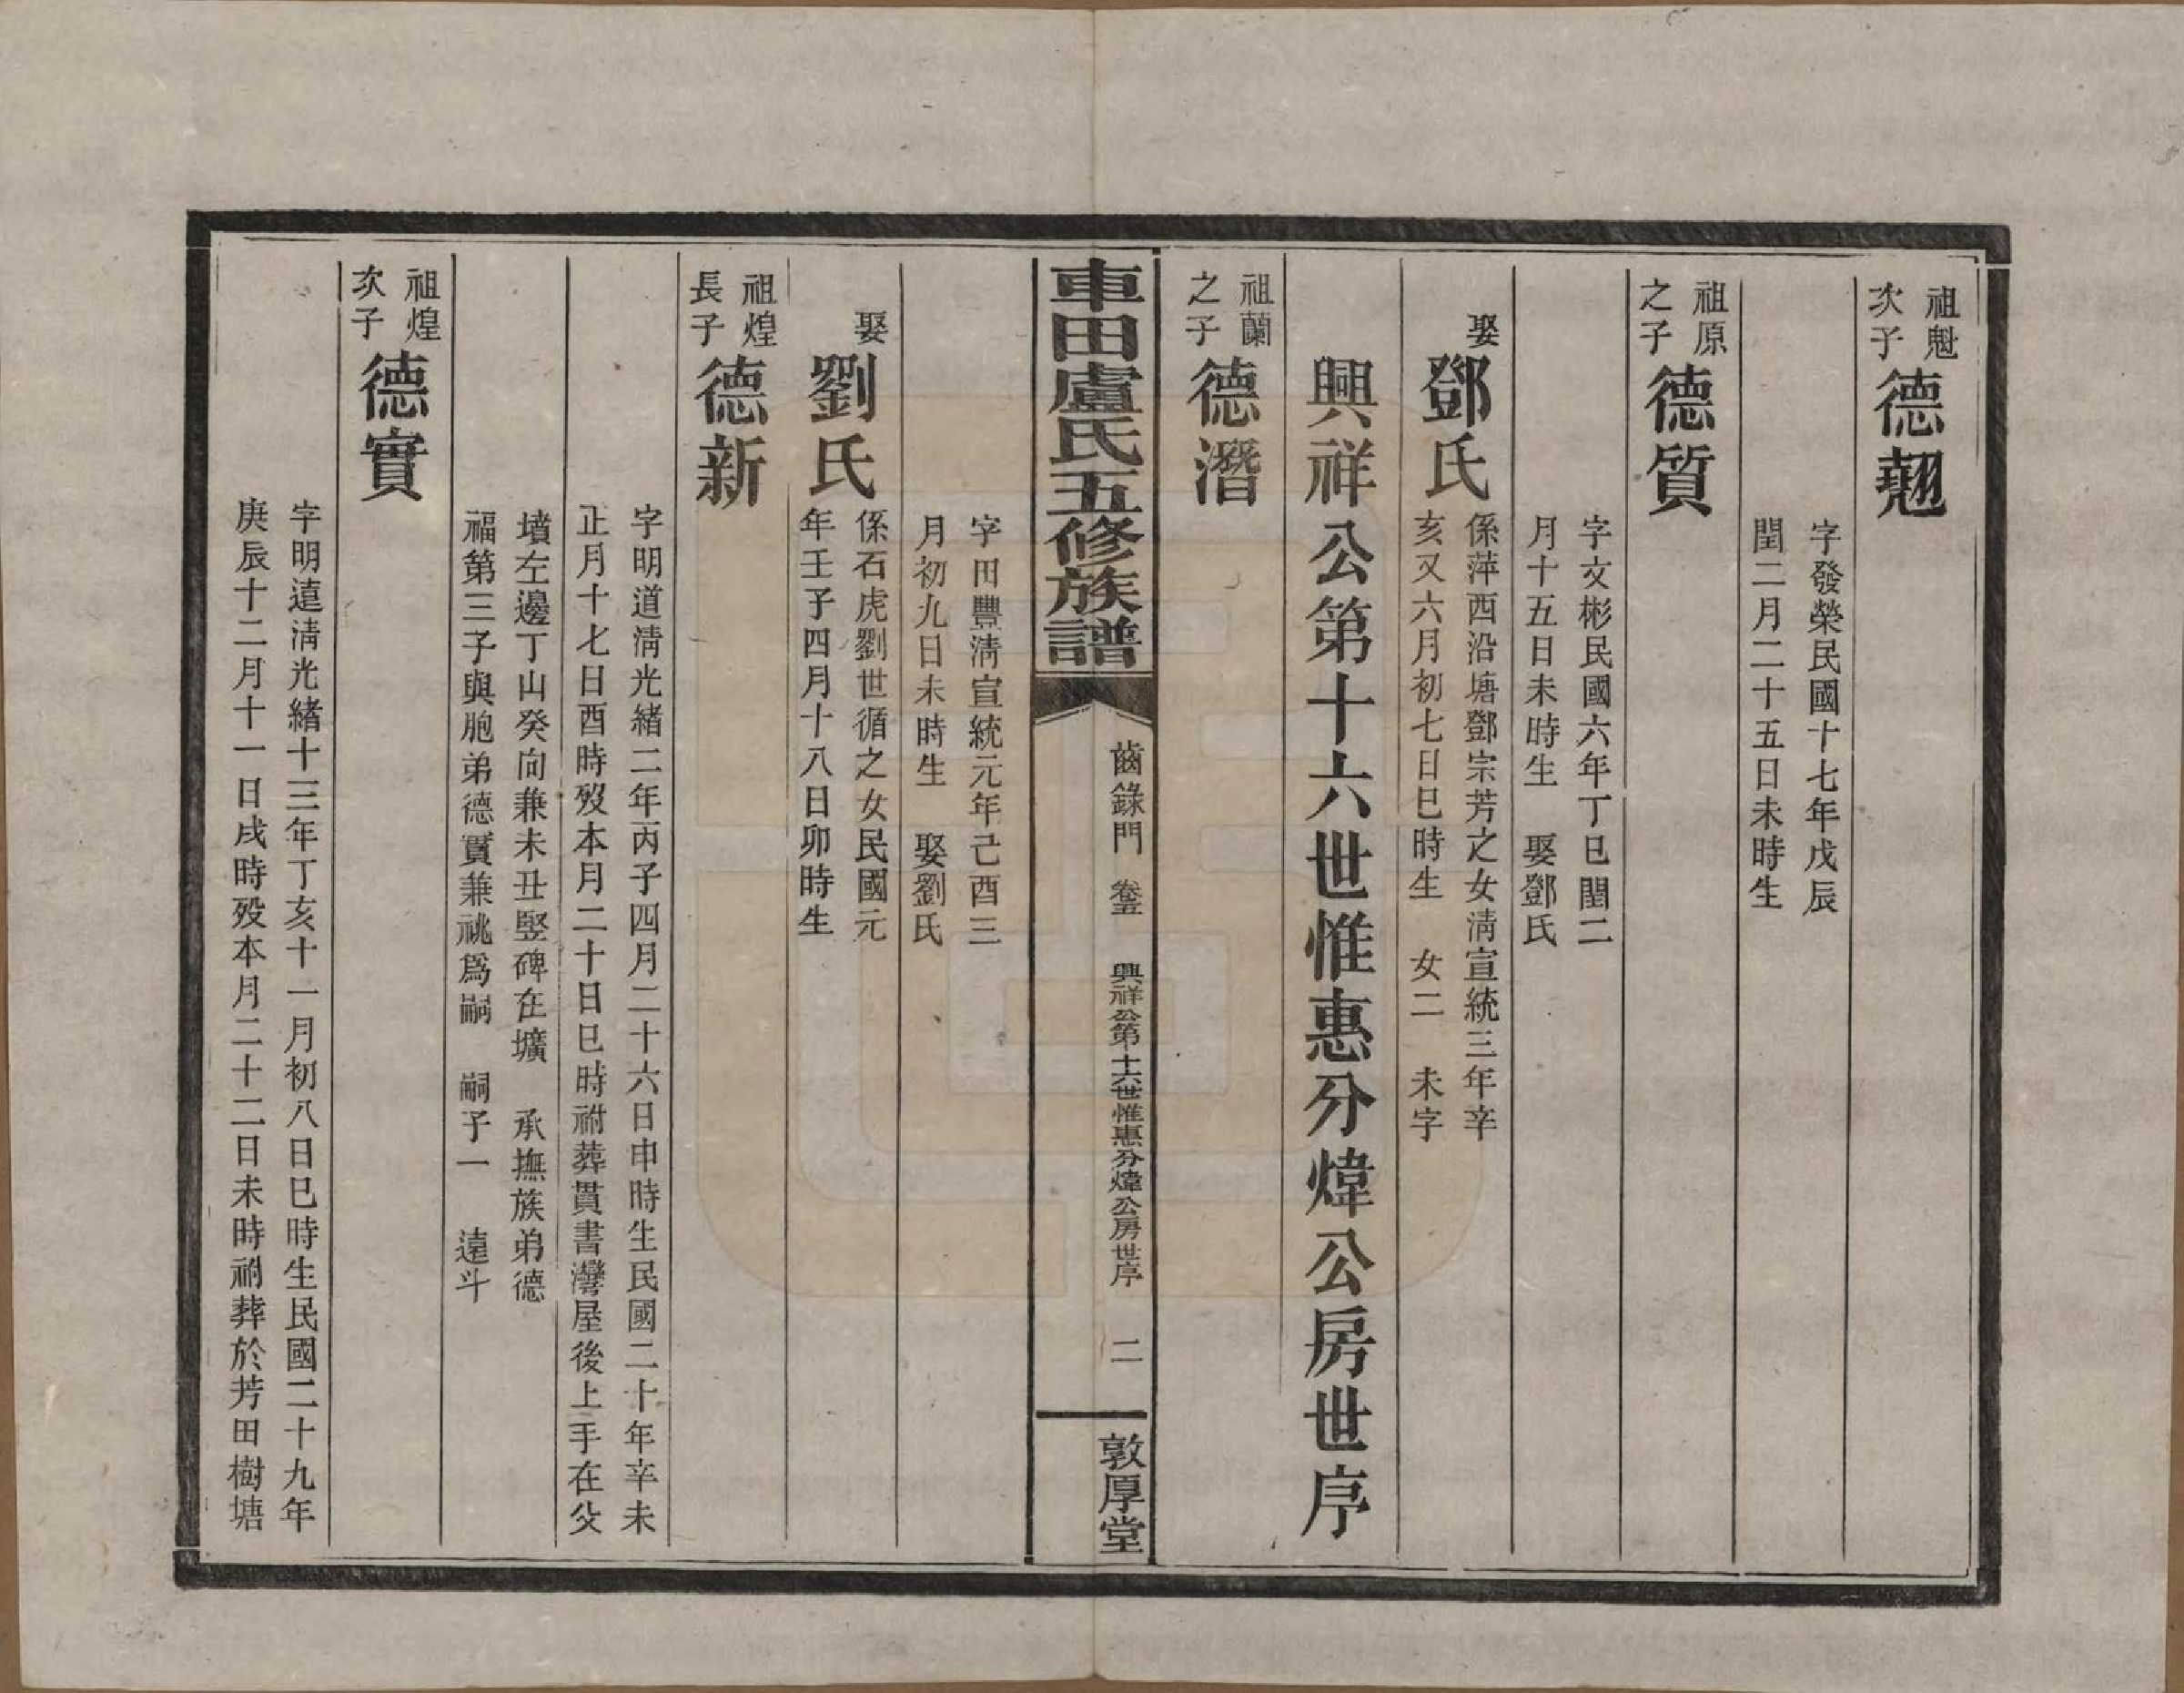 祖魁次子 德翹
字發榮民國十七年戊辰
閏二月二十五日未時生
祖原之子 德質
字文彬民國六年丁巳閏二
月十五日未時生 娶鄧氏
娶 鄧氏
係萍西沿塘鄧宗芳之女清宣統三年辛
亥又六月初七日巳時生 女二 未字
興祥公第十六世惟惠分煒公房世序
祖蘭之子 德潛
車田盧氏五修族譜
齒錄門 卷五 興祥公第十六世惟惠分煒公房世序 二
敦厚堂
字田豐清宣統元年己酉三
月初九日未時生 娶劉氏
娶 劉氏
係石虎劉世循之女民國元
年壬子四月十八日卯時生
祖煌長子 德新
字明道清光緒二年丙子四月二十六日申時生民國二十年辛未
正月十七日酉時歿本月二十日巳時祔葬貫書灣屋後上手在父
墳左邊丁山癸向兼未丑竪碑在壙 承撫族弟德
福第三子與胞弟德實兼祧爲嗣 嗣子一 遠斗
祖煌次子 德實
字明遠清光緒十三年丁亥十一月初八日巳時生民國二十九年
庚辰十二月十一日戌時歿本月二十二日未時祔葬於芳田樹塘